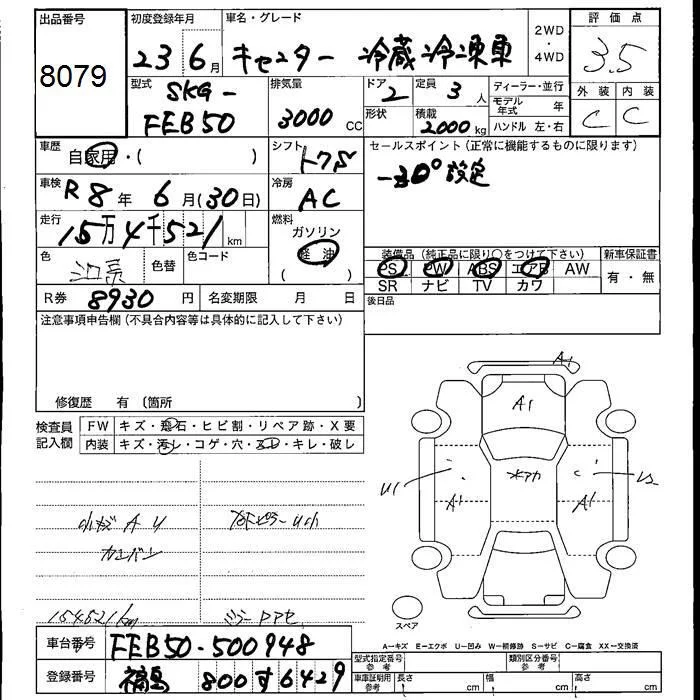 出品番号 初度登録年月 車名・グレード 2WD・4WD 評価点
8079 23 6月 キャンター 冷蔵冷凍車 3.5
型式 排気量 ドア 定員 ディーラー・並行 外装 内装
SKG- 2 3人 モデル年式 年 C C
FEB50 3000 CC 形状 積載 2000 kg ハンドル 左・右
車歴 シフト セールスポイント(正常に機能するものに限ります)
自家用・( ) -30°設定
車検 R8年 6月(30日) 冷房 AC
走行 15万4千521km 燃料 ガソリン
軽油
( )
色 色替 色コード 装備品(純正品に限り○をつけて下さい) 新車保証書
PS PW ABS エアB AW 有・無
SR ナビ TV カワ
R券 8930円 名変期限 月 日 後日品
注意事項申告欄(不具合内容等は具体的に記入して下さい)
修復歴 有(箇所
検査員記入欄 FW キズ・飛石・ヒビ割・リペア跡・X要
内装 キズ・汚レ・コゲ・穴・スレ・キレ・破レ
A1
A1
U1 水アカ
A1 A1
小キズ A U
154521km
スペア
A-キズ E-エクボ U-凹み W-補修跡 S-サビ C-腐食 XX-交換済
車台番号 FEB50-500948
型式指定番号 参考 類別区分番号 参考
登録番号 福島 800す6429
車庫証明用 参考 長さ cm 幅 cm 高さ cm